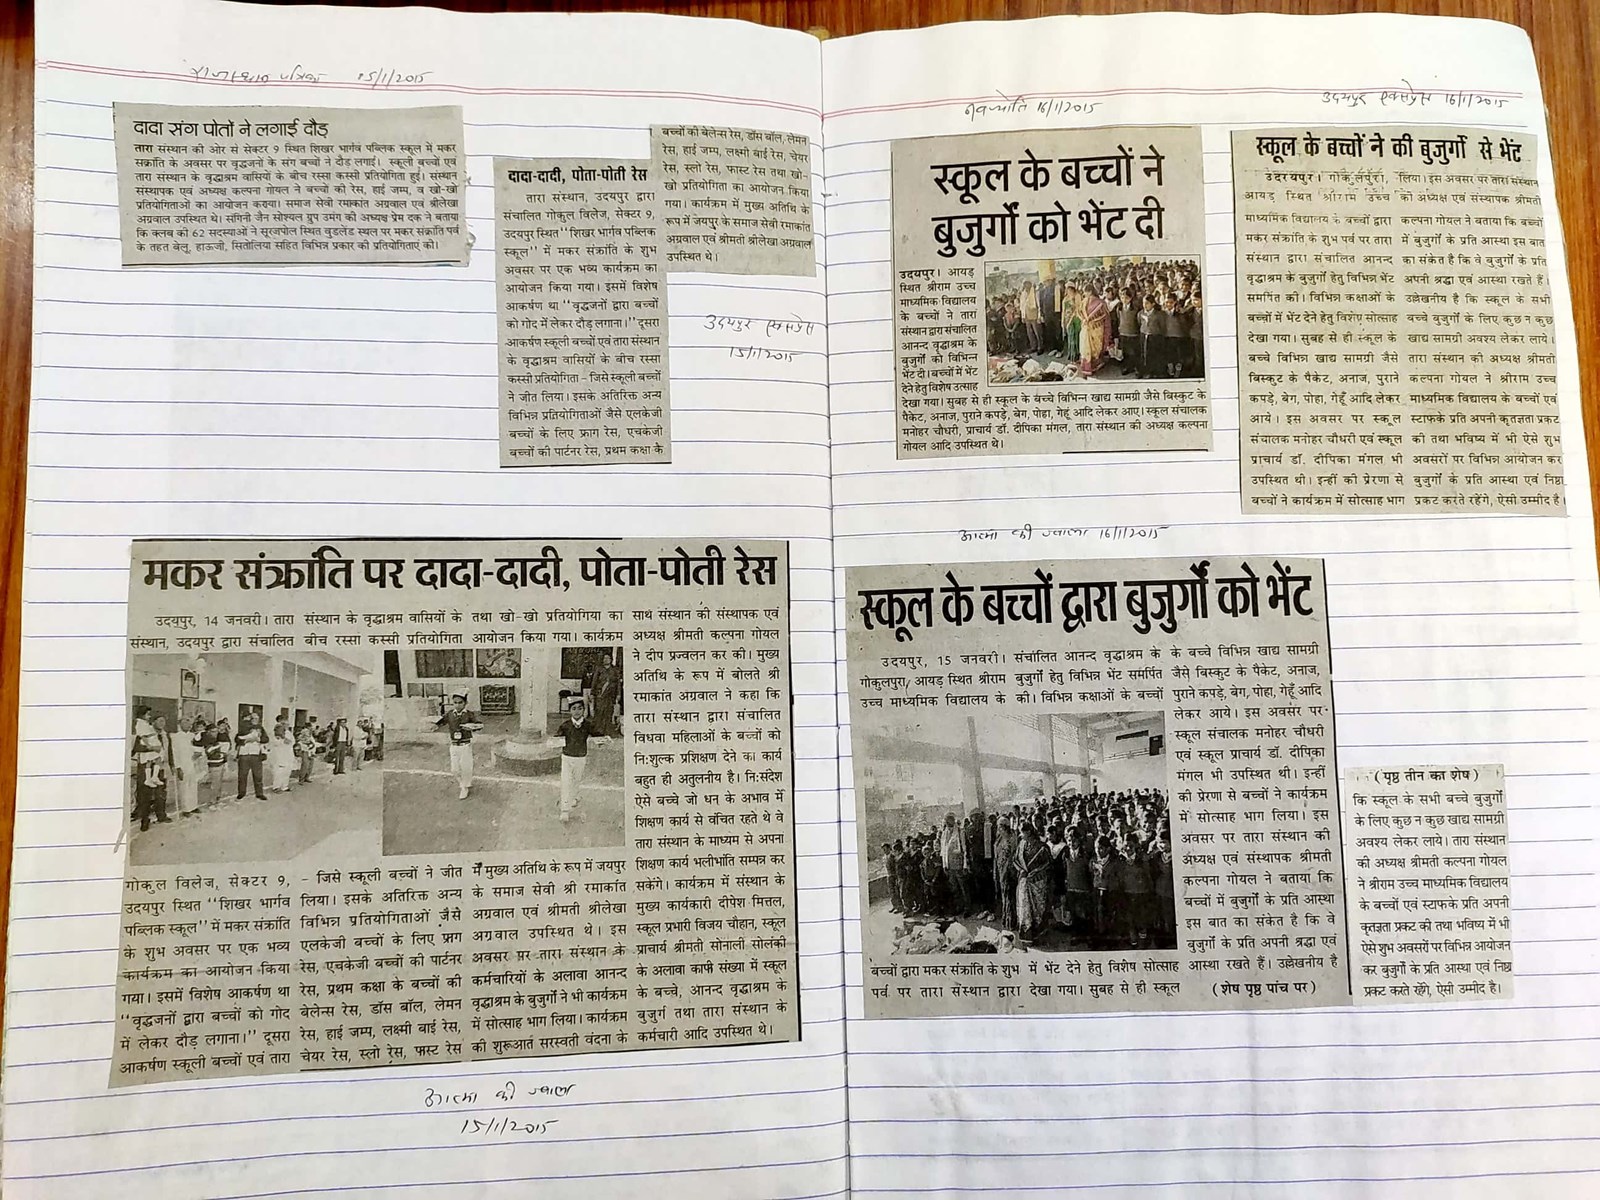 राजस्थान पत्रिका 15/1/2015
दादा संग पोतों ने लगाई दौड़
तारा संस्थान की ओर से सेक्टर 9 स्थित शिखर भार्गव पब्लिक स्कूल में मकर
सक्रांति के अवसर पर वृद्धजनों के संग बच्चों ने दौड़ लगाई। स्कूली बच्चों एवं
तारा संस्थान के वृद्धाश्रम वासियों के बीच रस्सा कस्सी प्रतियोगिता हुई। संस्थान
संस्थापक एवं अध्यक्ष कल्पना गोयल ने बच्चों की रेस, हाई जम्प, व खो-खो
प्रतियोगिताओं का आयोजन कराया। समाज सेवी रमाकांत अग्रवाल एवं श्रीलेखा
अग्रवाल उपस्थित थे। संगिनी जैन सोश्यल ग्रुप उमंग की अध्यक्ष प्रेम दक ने बताया
कि क्लब की 62 सदस्याओं ने सूरजपोल स्थित वुडलैंड स्थल पर मकर सक्रांति पर्व
के तहत बेलू, हाऊजी, सितोलिया सहित विभिन्न प्रकार की प्रतियोगिताएं की।
दादा-दादी, पोता-पोती रेस
तारा संस्थान, उदयपुर द्वारा
संचालित गोकुल विलेज, सेक्टर 9,
उदयपुर स्थित "शिखर भार्गव पब्लिक
स्कूल" में मकर संक्रांति के शुभ
अवसर पर एक भव्य कार्यक्रम का
आयोजन किया गया। इसमें विशेष
आकर्षण था "वृद्धजनों द्वारा बच्चों
को गोद में लेकर दौड़ लगाना।" दूसरा
आकर्षण स्कूली बच्चों एवं तारा संस्थान
के वृद्धाश्रम वासियों के बीच रस्सा
कस्सी प्रतियोगिता - जिसे स्कूली बच्चों
ने जीत लिया। इसके अतिरिक्त अन्य
विभिन्न प्रतियोगिताओं जैसे एलकेजी
बच्चों के लिए फ्राग रेस, एचकेजी
बच्चों की पार्टनर रेस, प्रथम कक्षा के
बच्चों की बेलेन्स रेस, डॉस बॉल, लेमन
रेस, हाई जम्प, लक्ष्मी बाई रेस, चेयर
रेस, स्लो रेस, फास्ट रेस तथा खो-
खो प्रतियोगिता का आयोजन किया
गया। कार्यक्रम में मुख्य अतिथि के
रूप में जयपुर के समाज सेवी रमाकांत
अग्रवाल एवं श्रीमती श्रीलेखा अग्रवाल
उपस्थित थे।
उदयपुर एक्सप्रेस
15/1/2015
मकर संक्रांति पर दादा-दादी, पोता-पोती रेस
उदयपुर, 14 जनवरी। तारा
संस्थान, उदयपुर द्वारा संचालित
गोकुल विलेज, सेक्टर 9,
उदयपुर स्थित "शिखर भार्गव
पब्लिक स्कूल" में मकर संक्रांति
के शुभ अवसर पर एक भव्य
कार्यक्रम का आयोजन किया
गया। इसमें विशेष आकर्षण था
"वृद्धजनों द्वारा बच्चों को गोद
में लेकर दौड़ लगाना।" दूसरा
आकर्षण स्कूली बच्चों एवं तारा
संस्थान के वृद्धाश्रम वासियों के
बीच रस्सा कस्सी प्रतियोगिता
- जिसे स्कूली बच्चों ने जीत
लिया। इसके अतिरिक्त अन्य
विभिन्न प्रतियोगिताओं जैसे
एलकेजी बच्चों के लिए फ्राग
रेस, एचकेजी बच्चों की पार्टनर
रेस, प्रथम कक्षा के बच्चों की
बेलेन्स रेस, डॉस बॉल, लेमन
रेस, हाई जम्प, लक्ष्मी बाई रेस,
चेयर रेस, स्लो रेस, फास्ट रेस
तथा खो-खो प्रतियोगिया का
आयोजन किया गया। कार्यक्रम
में मुख्य अतिथि के रूप में जयपुर
के समाज सेवी श्री रमाकांत
अग्रवाल एवं श्रीमती श्रीलेखा
अग्रवाल उपस्थित थे। इस
अवसर पर तारा संस्थान के
कर्मचारियों के अलावा आनन्द
वृद्धाश्रम के बुजुर्गों ने भी कार्यक्रम
में सोत्साह भाग लिया। कार्यक्रम
की शुरूआत सरस्वती वंदना के
साथ संस्थान की संस्थापक एवं
अध्यक्ष श्रीमती कल्पना गोयल
ने दीप प्रज्वलन कर की। मुख्य
अतिथि के रूप में बोलते श्री
रमाकांत अग्रवाल ने कहा कि
तारा संस्थान द्वारा संचालित
विधवा महिलाओं के बच्चों को
नि:शुल्क प्रशिक्षण देने का कार्य
बहुत ही अतुलनीय है। नि:संदेश
ऐसे बच्चे जो धन के अभाव में
शिक्षण कार्य से वंचित रहते थे वे
तारा संस्थान के माध्यम से अपना
शिक्षण कार्य भलीभांति सम्पन्न कर
सकेंगे। कार्यक्रम में संस्थान के
मुख्य कार्यकारी दीपेश मित्तल,
स्कूल प्रभारी विजय चौहान, स्कूल
प्राचार्य श्रीमती सोनाली सोलंकी
के अलावा काफी संख्या में स्कूल
के बच्चे, आनन्द वृद्धाश्रम के
बुजुर्ग तथा तारा संस्थान के
कर्मचारी आदि उपस्थित थे।
आत्मा की ज्वाला
15/1/2015
नवज्योति 16/1/2015
स्कूल के बच्चों ने
बुजुर्गों को भेंट दी
उदयपुर। आयड़
स्थित श्रीराम उच्च
माध्यमिक विद्यालय
के बच्चों ने तारा
संस्थान द्वारा संचालित
आनन्द वृद्धाश्रम के
बुजुर्गों को विभिन्न
भेंट दी। बच्चों में भेंट
देने हेतु विशेष उत्साह
देखा गया। सुबह से ही स्कूल के बच्चे विभिन्न खाद्य सामग्री जैसे बिस्कुट के
पैकेट, अनाज, पुराने कपड़े, बेग, पोहा, गेहूं आदि लेकर आए। स्कूल संचालक
मनोहर चौधरी, प्राचार्य डॉ. दीपिका मंगल, तारा संस्थान की अध्यक्ष कल्पना
गोयल आदि उपस्थित थे।
उदयपुर एक्सप्रेस 16/1/2015
स्कूल के बच्चों ने की बुजुर्गों से भेंट
उदयपुर। गोकुलपुरा,
आयड़ स्थित श्रीराम उच्च
माध्यमिक विद्यालय के बच्चों द्वारा
मकर संक्रांति के शुभ पर्व पर तारा
संस्थान द्वारा संचालित आनन्द
वृद्धाश्रम के बुजुर्गों हेतु विभिन्न भेंट
समर्पित की। विभिन्न कक्षाओं के
बच्चों में भेंट देने हेतु विशेष सोत्साह
देखा गया। सुबह से ही स्कूल के
बच्चे विभिन्न खाद्य सामग्री जैसे
बिस्कुट के पैकेट, अनाज, पुराने
कपड़े, बेग, पोहा, गेहूँ आदि लेकर
आये। इस अवसर पर स्कूल
संचालक मनोहर चौधरी एवं स्कूल
प्राचार्य डॉ. दीपिका मंगल भी
उपस्थित थी। इन्हीं की प्रेरणा से
बच्चों ने कार्यक्रम में सोत्साह भाग
लिया। इस अवसर पर तारा संस्थान
की अध्यक्ष एवं संस्थापक श्रीमती
कल्पना गोयल ने बताया कि बच्चों
में बुजुर्गों के प्रति आस्था इस बात
का संकेत है कि वे बुजुर्गों के प्रति
अपनी श्रद्धा एवं आस्था रखते हैं।
उल्लेखनीय है कि स्कूल के सभी
बच्चे बुजुर्गों के लिए कुछ न कुछ
खाद्य सामग्री अवश्य लेकर लाये।
तारा संस्थान की अध्यक्ष श्रीमती
कल्पना गोयल ने श्रीराम उच्च
माध्यमिक विद्यालय के बच्चों एवं
स्टाफके प्रति अपनी कृतज्ञता प्रकट
की तथा भविष्य में भी ऐसे शुभ
अवसरों पर विभिन्न आयोजन कर
बुजुर्गों के प्रति आस्था एवं निष्ठा
प्रकट करते रहेंगे, ऐसी उम्मीद है।
आत्मा की ज्वाला 16/1/2015
स्कूल के बच्चों द्वारा बुजुर्गों को भेंट
उदयपुर, 15 जनवरी।
गोकुलपुरा, आयड़ स्थित श्रीराम
उच्च माध्यमिक विद्यालय के
बच्चों द्वारा मकर संक्रांति के शुभ
पर्व पर तारा संस्थान द्वारा
संचालित आनन्द वृद्धाश्रम के
बुजुर्गों हेतु विभिन्न भेंट समर्पित
की। विभिन्न कक्षाओं के बच्चों
में भेंट देने हेतु विशेष सोत्साह
देखा गया। सुबह से ही स्कूल
के बच्चे विभिन्न खाद्य सामग्री
जैसे बिस्कुट के पैकेट, अनाज,
पुराने कपड़े, बेग, पोहा, गेहूँ आदि
लेकर आये। इस अवसर पर
स्कूल संचालक मनोहर चौधरी
एवं स्कूल प्राचार्य डॉ. दीपिका
मंगल भी उपस्थित थी। इन्हीं
की प्रेरणा से बच्चों ने कार्यक्रम
में सोत्साह भाग लिया। इस
अवसर पर तारा संस्थान की
अध्यक्ष एवं संस्थापक श्रीमती
कल्पना गोयल ने बताया कि
बच्चों में बुजुर्गों के प्रति आस्था
इस बात का संकेत है कि वे
बुजुर्गों के प्रति अपनी श्रद्धा एवं
आस्था रखते हैं। उल्लेखनीय है
(शेष पृष्ठ पांच पर)
(पृष्ठ तीन का शेष)
कि स्कूल के सभी बच्चे बुजुर्गों
के लिए कुछ न कुछ खाद्य सामग्री
अवश्य लेकर लाये। तारा संस्थान
की अध्यक्ष श्रीमती कल्पना गोयल
ने श्रीराम उच्च माध्यमिक विद्यालय
के बच्चों एवं स्टाफके प्रति अपनी
कृतज्ञता प्रकट की तथा भविष्य में भी
ऐसे शुभ अवसरों पर विभिन्न आयोजन
कर बुजुर्गों के प्रति आस्था एवं निष्ठा
प्रकट करते रहेंगे, ऐसी उम्मीद है।